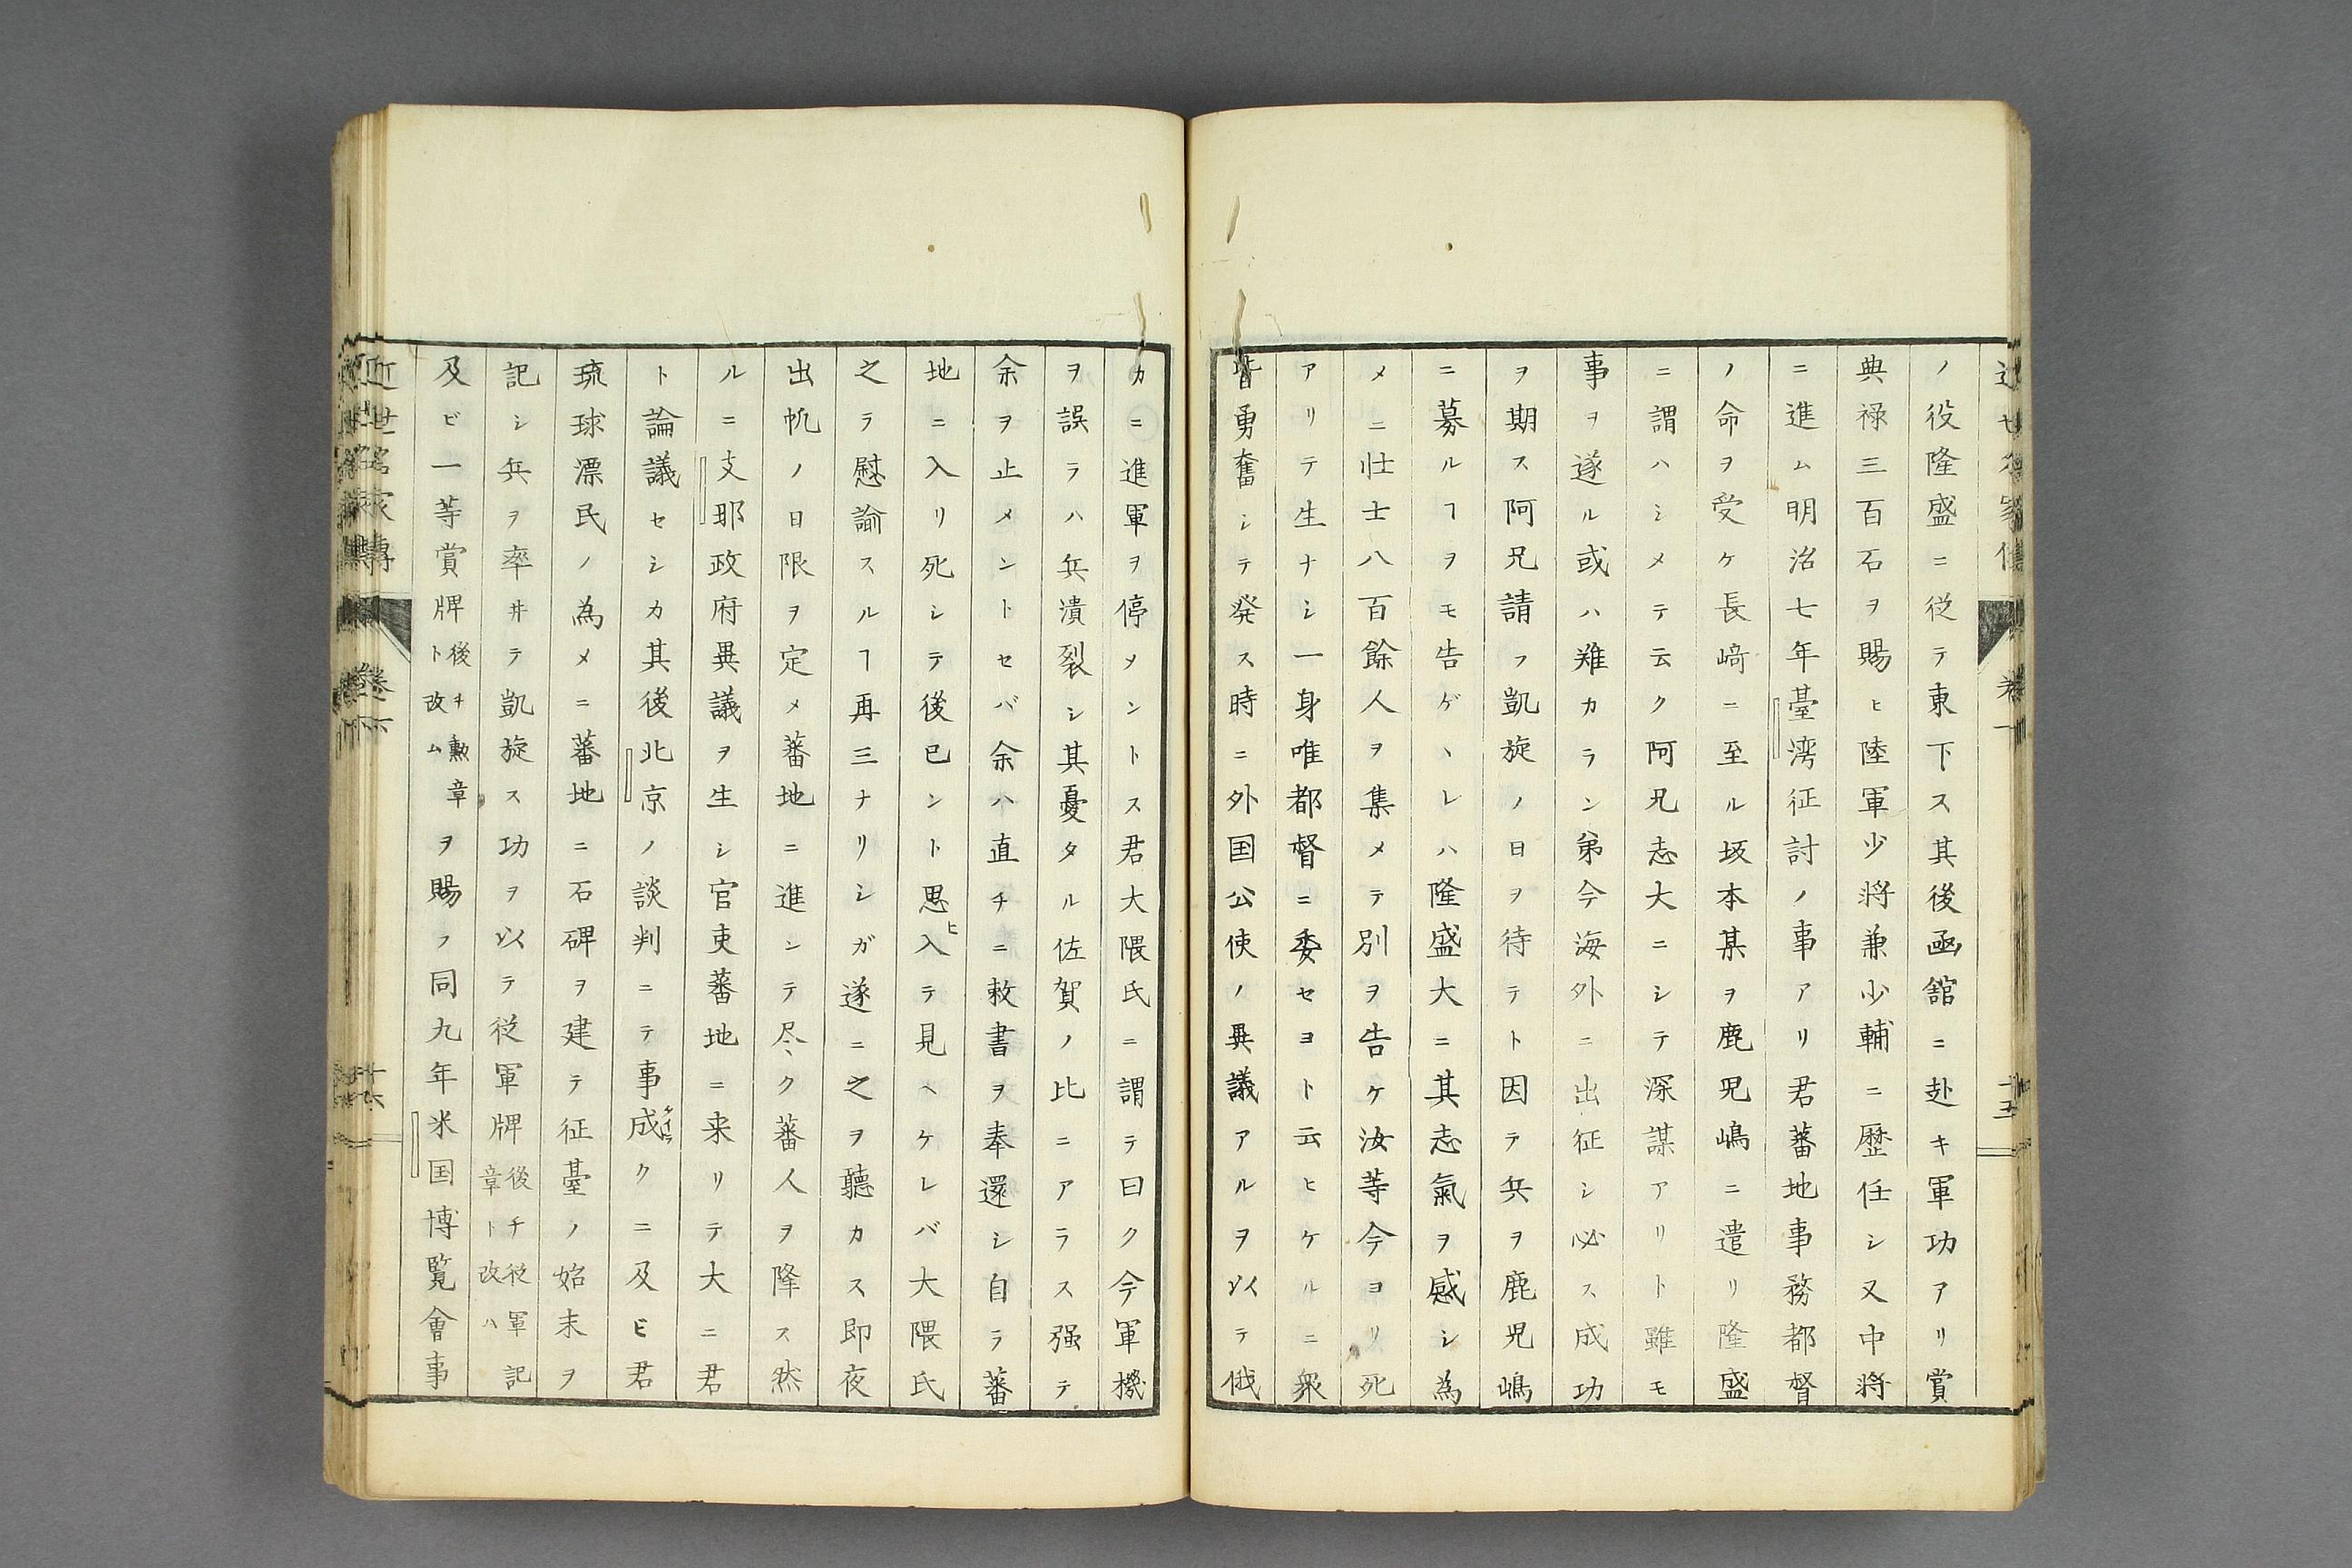 ノ役隆盛ニ従テ東下ス其後凾舘ニ赴キ軍功アリ賞
典禄三百石ヲ賜ヒ陸軍少将兼少輔ニ歴任シ又中将
ニ進ム明治七年臺湾征討ノ事アリ君蕃地事務都督
ノ命ヲ受ケ長﨑ニ至ル坂本某ヲ鹿兒嶋ニ遣リ隆盛
ニ謂ハシメテ云ク阿兄志大ニシテ深謀アリト雖モ
事ヲ遂ル或ハ難カラン弟今海外ニ出征シ必ス成功
ヲ期ス阿兄請フ凱旋ノ日ヲ待テト因テ兵ヲ鹿児嶋
ニ募ルヿヲモ告ゲヽレハ隆盛大ニ其志氣ヲ感シ為
メニ壮士八百餘人ヲ集メテ別ヲ告ケ汝等今ヨリ死
アリテ生ナシ一身唯都督ニ委セヨト云ヒケルニ衆
皆勇奮シテ発ス時ニ外国公使ノ異議アルヲ以テ俄
カニ進軍ヲ停メントス君大隈氏ニ謂テ曰ク今軍機
ヲ誤ラハ兵潰裂シ其憂タル佐賀ノ比ニアラス强テ
余ヲ止メントセバ余ハ直チニ敕書ヲ奉還シ自ラ蕃
地ニ入リ死シテ後已ント思ヒ入テ見ヘケレバ大隈氏
之ラ慰諭スルヿ再三ナリシガ遂ニ之ヲ聽カス即夜
出帆ノ日限ヲ定メ蕃地ニ進ンテ尽ヽク蕃人ヲ降ス然
ルニ支那政府異議ヲ生シ官吏蕃地ニ来リテ大ニ君
ト論議セシカ其後北京ノ談判ニテ事成クニ及ビ君
琉球漂民ノ為メニ蕃地ニ石碑ヲ建テ征臺ノ始末ヲ
記シ兵ヲ率井テ凱旋ス功ヲ以テ従軍牌後チ従軍記章ト改ハ
及ビ一等賞牌後チ勲章ト改ムヲ賜フ同九年米国博覧會事
近世名家傳
巻一